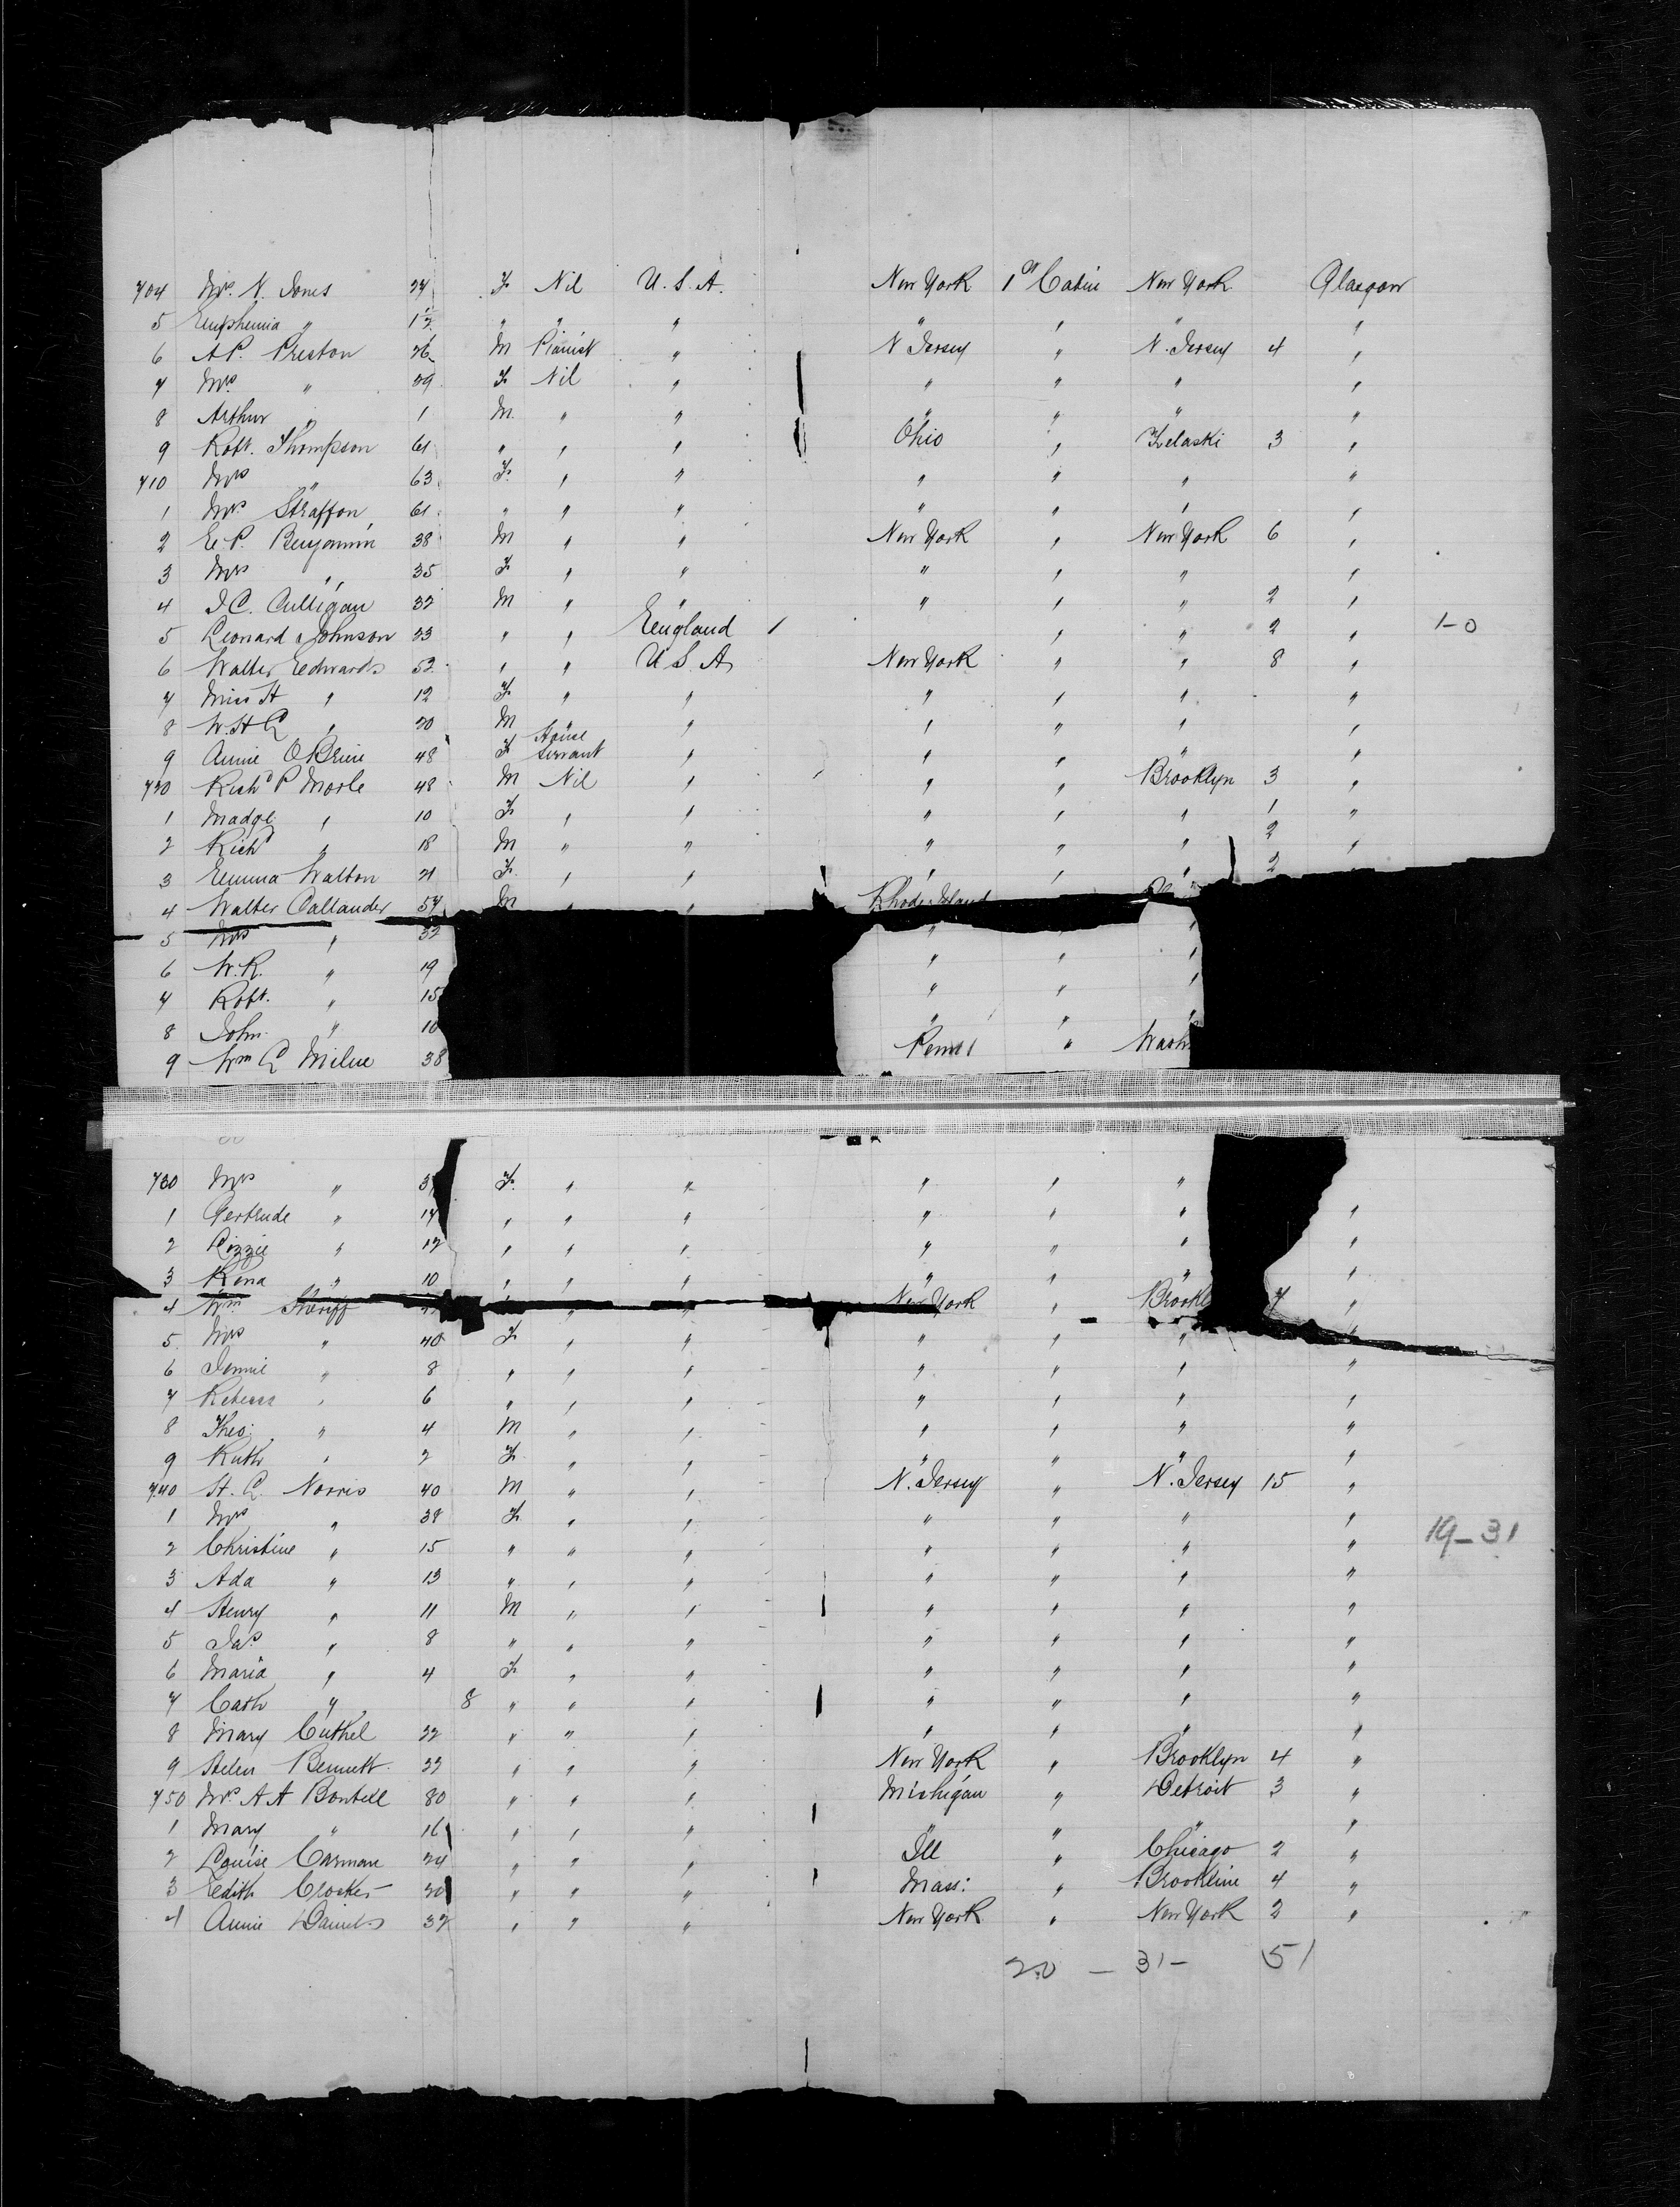 704 Mrs. N. Jones 24 F Nil U.S.A. New York 1st Cabin New York Glasgow
5 Euphemia " 1½ " " " " " " "
6 A.P. Preston 26 M Pianist " N Jersey " N. Jersey 4 "
7 Mrs " 29 F Nil " " " " "
8 Arthur " 1 M " " " " " "
9 Robt. Thompson 61 " " " Ohio " Zelaski 3 "
710 Mrs " 63 F " " " " " "
1 Mrs Straffon 61 " " " " " " "
2 E.P. Benjamin 38 M " " New York " New York 6 "
3 Mrs " 35 F " " " " " "
4 J.C. Culligan 32 M " " " " " 2 "
5 Leonard Johnson 23 " " England / " " 2 " 1-0
6 Walter Edwards 52 " " U.S.A. New York " " 8 "
7 Miss H " 12 F " " " " " "
8 W.H.G " 20 M " " " " " "
9 Annie O'Brine 48 F House Servant " " " " "
720 Richd P Morle 48 M Nil " " " Brooklyn 3 "
1 Madge " 10 F " " " " " 1 "
2 Richd " 18 M " " " " " 2 "
3 Emma Walton 21 F " " " " " 2
4 Walter Callander 54 M " " Rhode Island
5 Mrs " 32 " " "
6 W.R. " 19 " " "
7 Robt. " 15 " " "
8 John " 10 " " "
9 Wm G Milne 38 Penns " Wash
730 Mrs " F " " " " "
1 Gertrude " 14 " " " " " " "
2 Lizzie " 12 " " " " " " "
3 Rena " 10 " " " " " " "
4 Wm Sheriff " " New York " Brookl 7 "
5 Mrs " 40 F " " " " " "
6 Jennie " 8 " " " " " " "
7 Rebecca " 6 " " " " " " "
8 Theo: " 4 M " " " " " "
9 Ruth " 2 F " " " " " "
740 H. G. Norris 40 M " " N. Jersey " N. Jersey 15 "
1 Mrs " 38 F " " " " " "
2 Christine " 15 " " " " " " " 19-31
3 Ada " 13 " " " " " " "
4 Henry " 11 M " " " " " "
5 Jas " 8 " " " " " " "
6 Maria " 4 F " " " " " "
7 Cath " 8 " " " " " " "
8 Mary Cuthel 22 " " " " " " "
9 Helen Bennett 22 " " " New York " Brooklyn 4 "
750 Mrs A A Bontell 80 " " " Michigan " Detroit 3 "
1 Mary " 16 " " " " " " "
2 Louise Carman 24 " " " Ill " Chicago 2 "
3 Edith Crocker 20 " " " Mass: " Brookline 4 "
4 Annie Daniels 32 " " " New York " New York 2 "
20 - 31 - 51